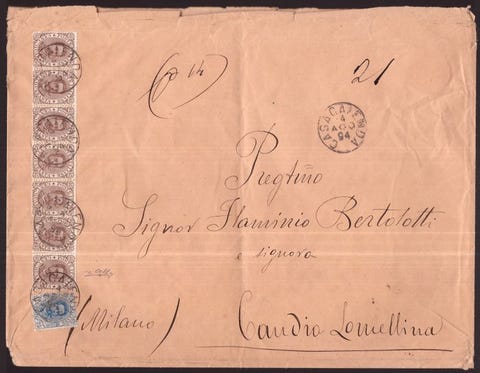 (p 14)
21
CASACALENDA
4
AGO
94
Pregtmo
Signor Flaminio Bertolotti
e signora
(Milano)
Candia Lomellina